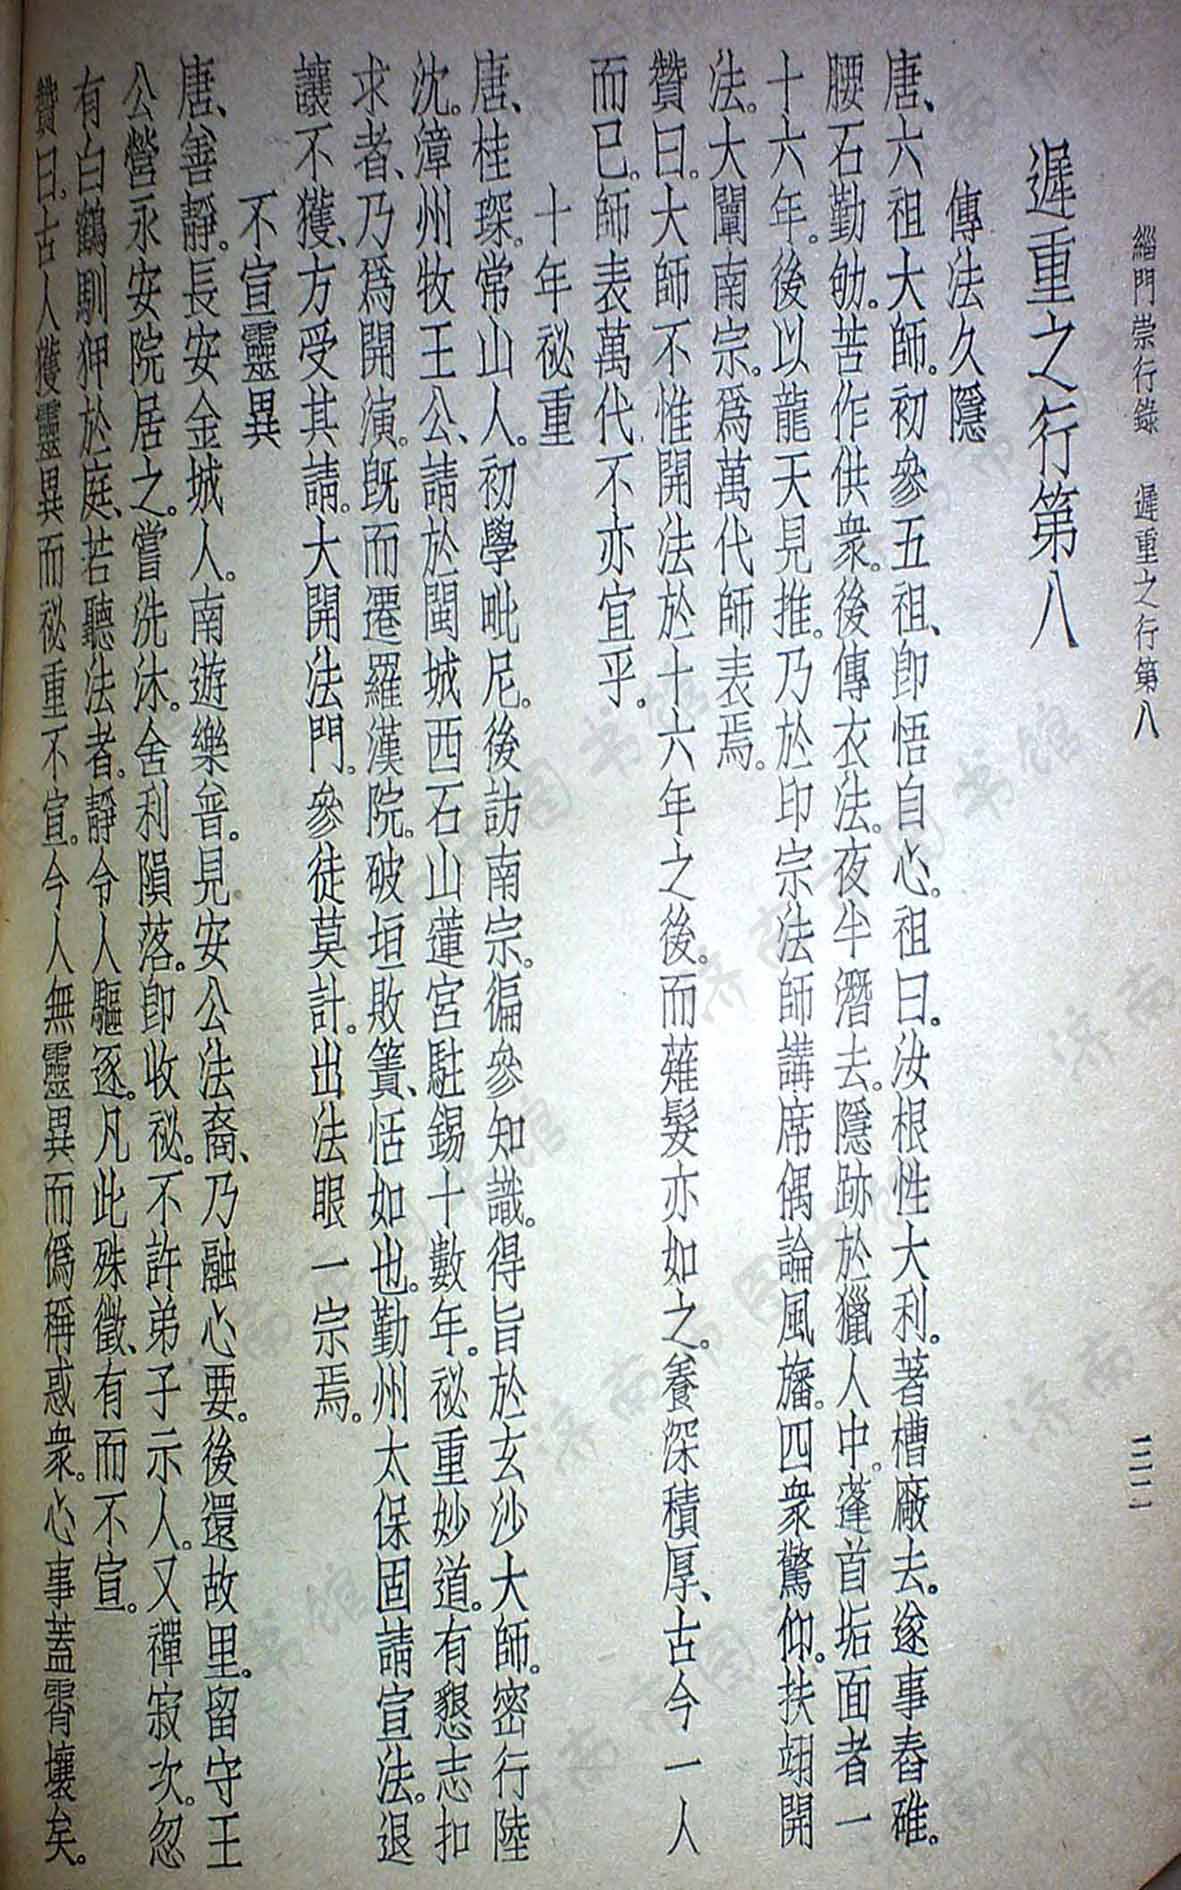 緇門崇行錄　遲重之行第八　三二
遲重之行第八
傳法久隱
唐、六祖大師。初參五祖、卽悟自心。祖曰。汝根性大利。著槽廠去。遂事舂碓。
腰石勤劬。苦作供衆。後傳衣法。夜半潛去。隱跡於獵人中。蓬首垢面者一
十六年。後以龍天見推。乃於印宗法師講席偶論風旛。四衆驚仰。扶翊開
法。大闡南宗。爲萬代師表焉。
贊曰。大師不惟開法於十六年之後。而薙髮亦如之。養深積厚、古今一人
而已。師表萬代、不亦宜乎。
十年祕重
唐、桂琛。常山人。初學毗尼。後訪南宗。徧參知識。得旨於玄沙大師。密行陸
沈。漳州牧王公、請於閩城西石山蓮宮駐錫十數年。祕重妙道。有懇志扣
求者、乃爲開演。旣而遷羅漢院。破垣敗簀、恬如也。勤州太保固請宣法。退
讓不獲、方受其請。大開法門。參徒莫計。出法眼一宗焉。
不宣靈異
唐、善靜。長安金城人。南遊樂普。見安公法裔、乃融心要。後還故里。留守王
公營永安院居之。嘗洗沐。舍利隕落。卽收祕。不許弟子示人。又禪寂次。忽
有白鶴馴狎於庭、若聽法者。靜令人驅逐。凡此殊徵、有而不宣。
贊曰。古人獲靈異而祕重不宣。今人無靈異而僞稱惑衆。心事蓋霄壤矣。